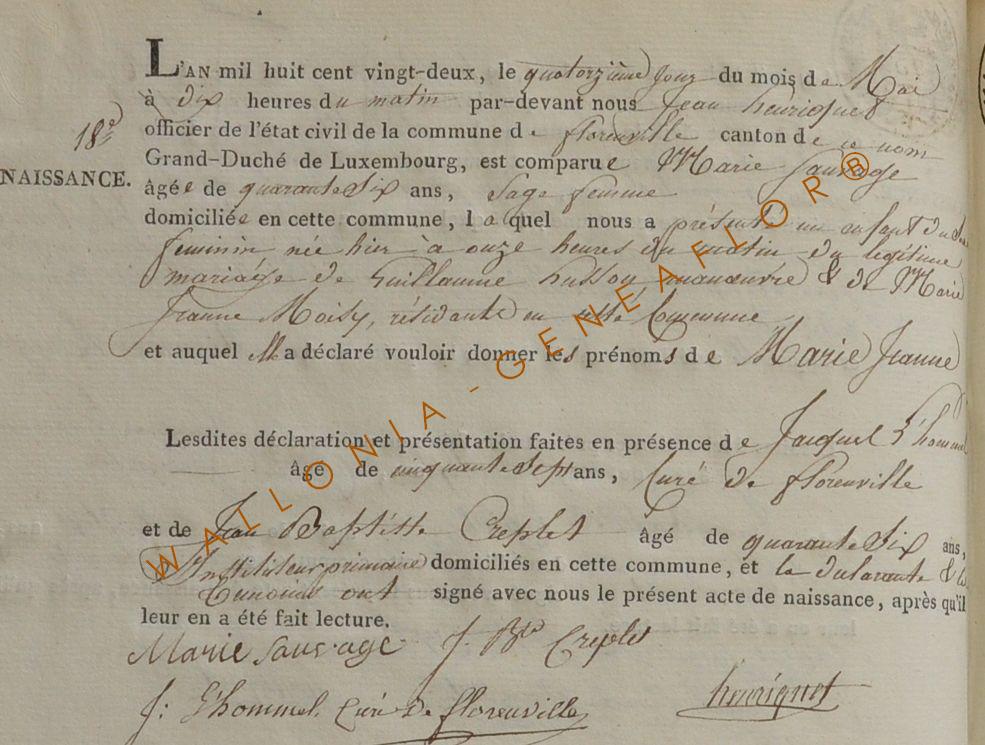 L'AN mil huit cent vingt-deux, le quatorzième jour du mois de Mai
à dix heures du matin par-devant nous Jean henriquet
18e
officier de l'état civil de la commune de florenville canton de ce nom
Grand-Duché de Luxembourg, est comparue Marie Sauvage
NAISSANCE.
âgée de quarante Six ans, Sage femme
domiciliée en cette commune, laquel nous a présenté un enfant du Sexe
feminin née hier à onze heures du matin du légitime
mariage de Guillaume husson manœuvre & de Marie
Jeanne Moisy, résidante en cette Commune
et auquel elle a déclaré vouloir donner les prénoms de Marie Jeanne
Lesdites déclaration et présentation faites en présence de Jacques L'hommel
âgé de cinquante Sept ans, Curé de florenville
et de Jean Baptiste Creplet âgé de quarante Six ans,
Instituteur primaire domiciliés en cette commune, et la declarante & les
temoins ont signé avec nous le présent acte de naissance, après qu'il
leur en a été fait lecture.
Marie Sauvage J. Bte Creplet
J: L'hommel Curé De florenville henriquet
WALLONIA - GENEAFLOR®